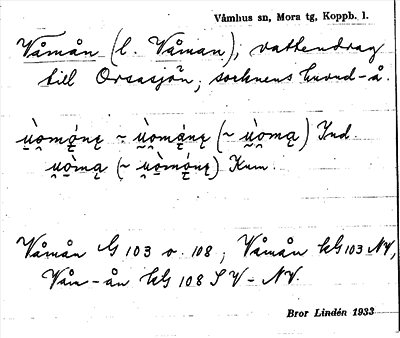 Våmhus sn, Mora tg, Koppb. l.
Våmån (l. Våman), vattendrag
till Orsasjön, socknens huvud-å.
Ind.
Kum.
Våmån G 103 o. 108, Våmån kG 103 NV,
Vån-ån kG 108 SV-NV.
Bror Lindén 1933